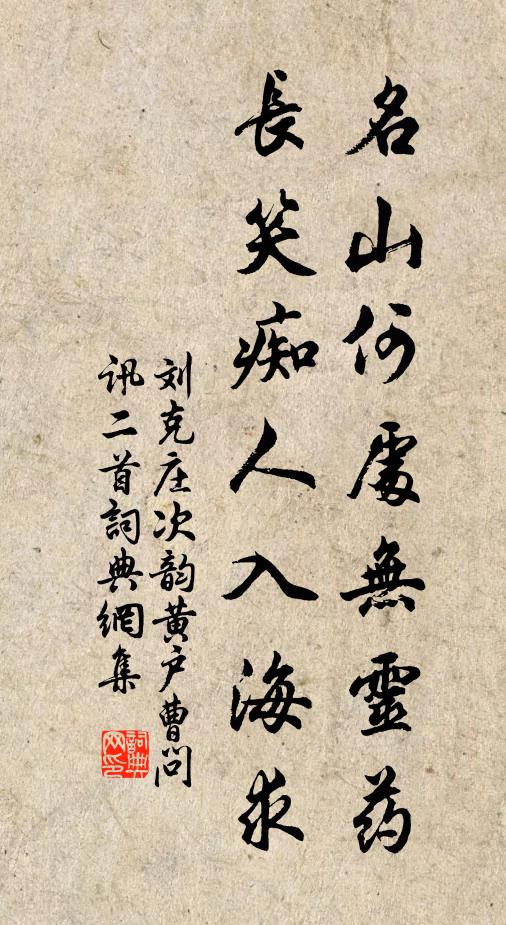 名山何處無靈药
長笑痴人入海求
刘克庄次韵黄户曹問
訊二首詞典網集
詞典
网印